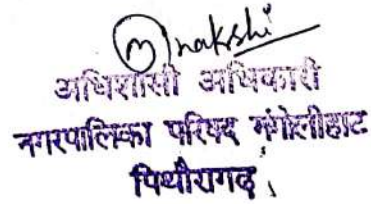 Mnakshi
अधिशासी अधिकारी
नगरपालिका परिषद गंगोलीहाट
पिथौरागढ़